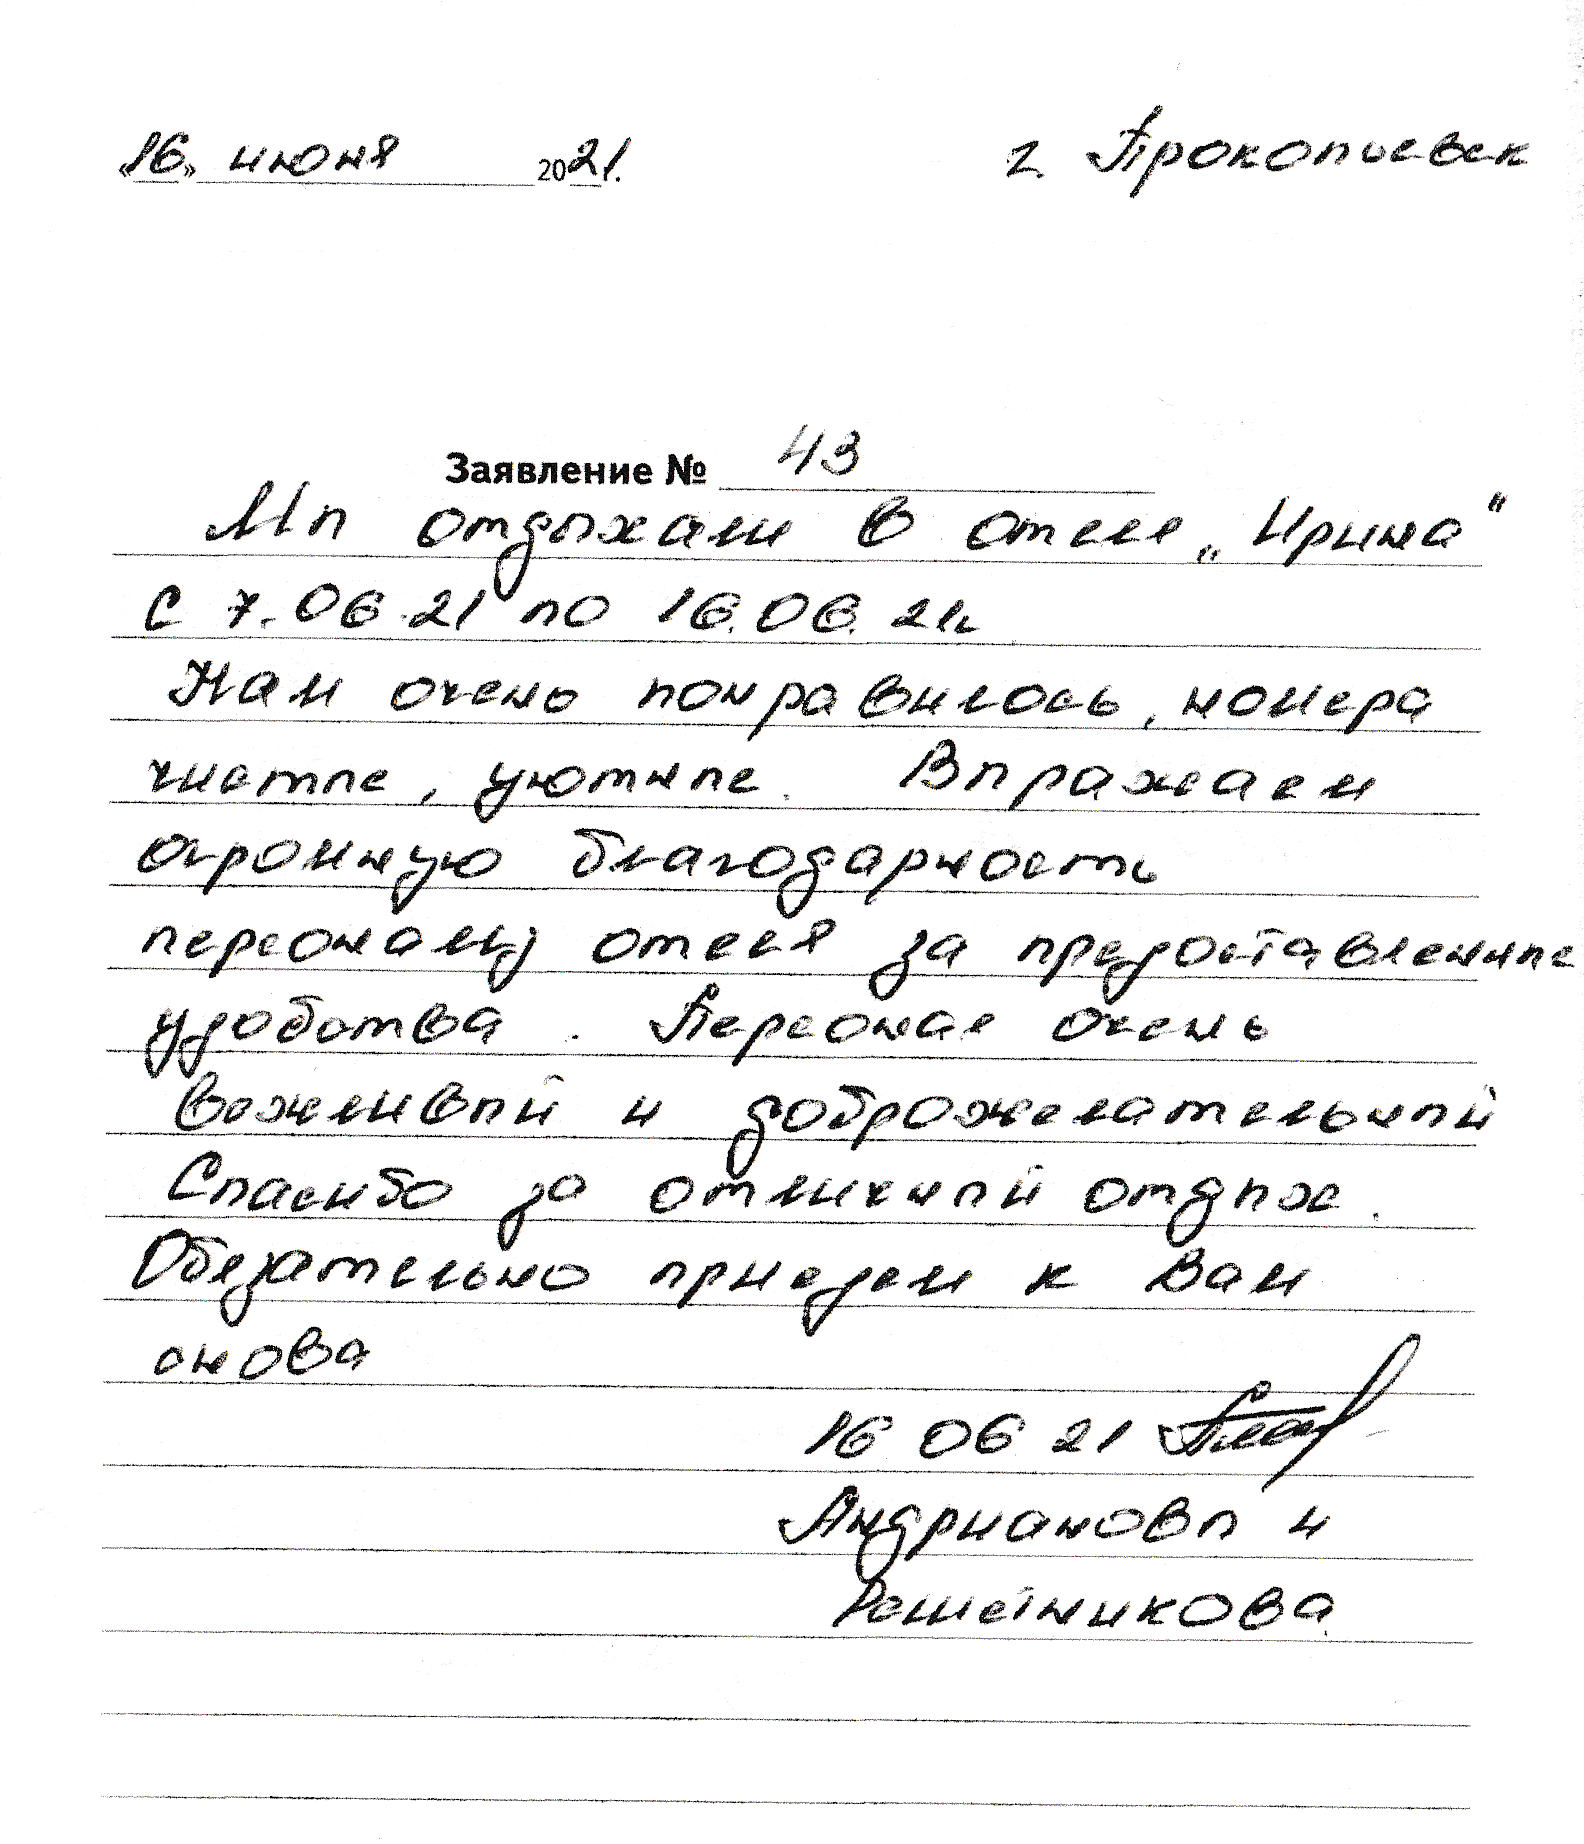 «16» июня 2021.
г. Прокопьевск
Заявление № 43
Мы отдыхали в отеле „Ирина"
с 7.06.21 по 16.06.21г
Нам очень понравилось, номера
чистые, уютные. Выражаем
огромную благодарность
персоналу отеля за предоставленные
удобства. Персонал очень
вежливый и доброжелательный
Спасибо за отличный отдых.
Обязательно приедем к Вам
снова
16 06 21
Андриановы и
Решетникова